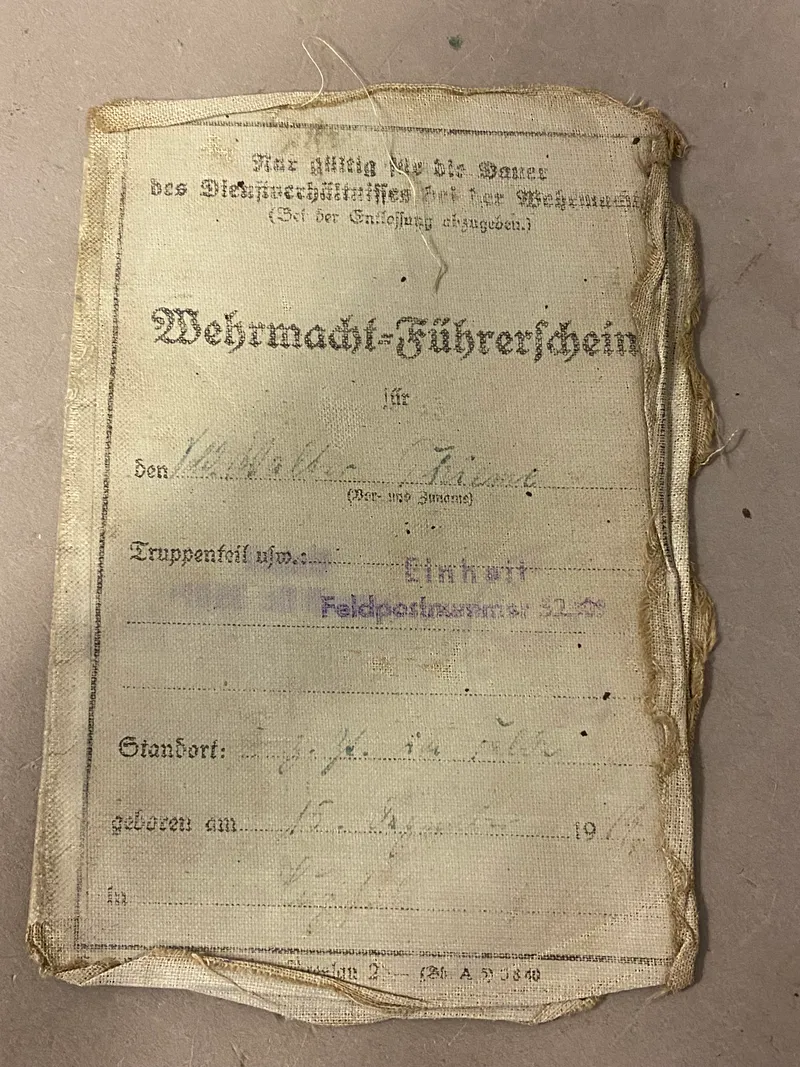 Nur gültig für die Dauer
des Dienstverhältnisses bei der Wehrmacht
(Bei der Entlassung abzugeben.)
Wehrmacht-Führerschein
für
den Walter
(Vor- und Zuname)
Truppenteil usw.:
Einheit
Feldpostnummer
Standort: z. Zt. im Felde
geboren am 15. 19
in
Breslau 2 — (Bb A 5)